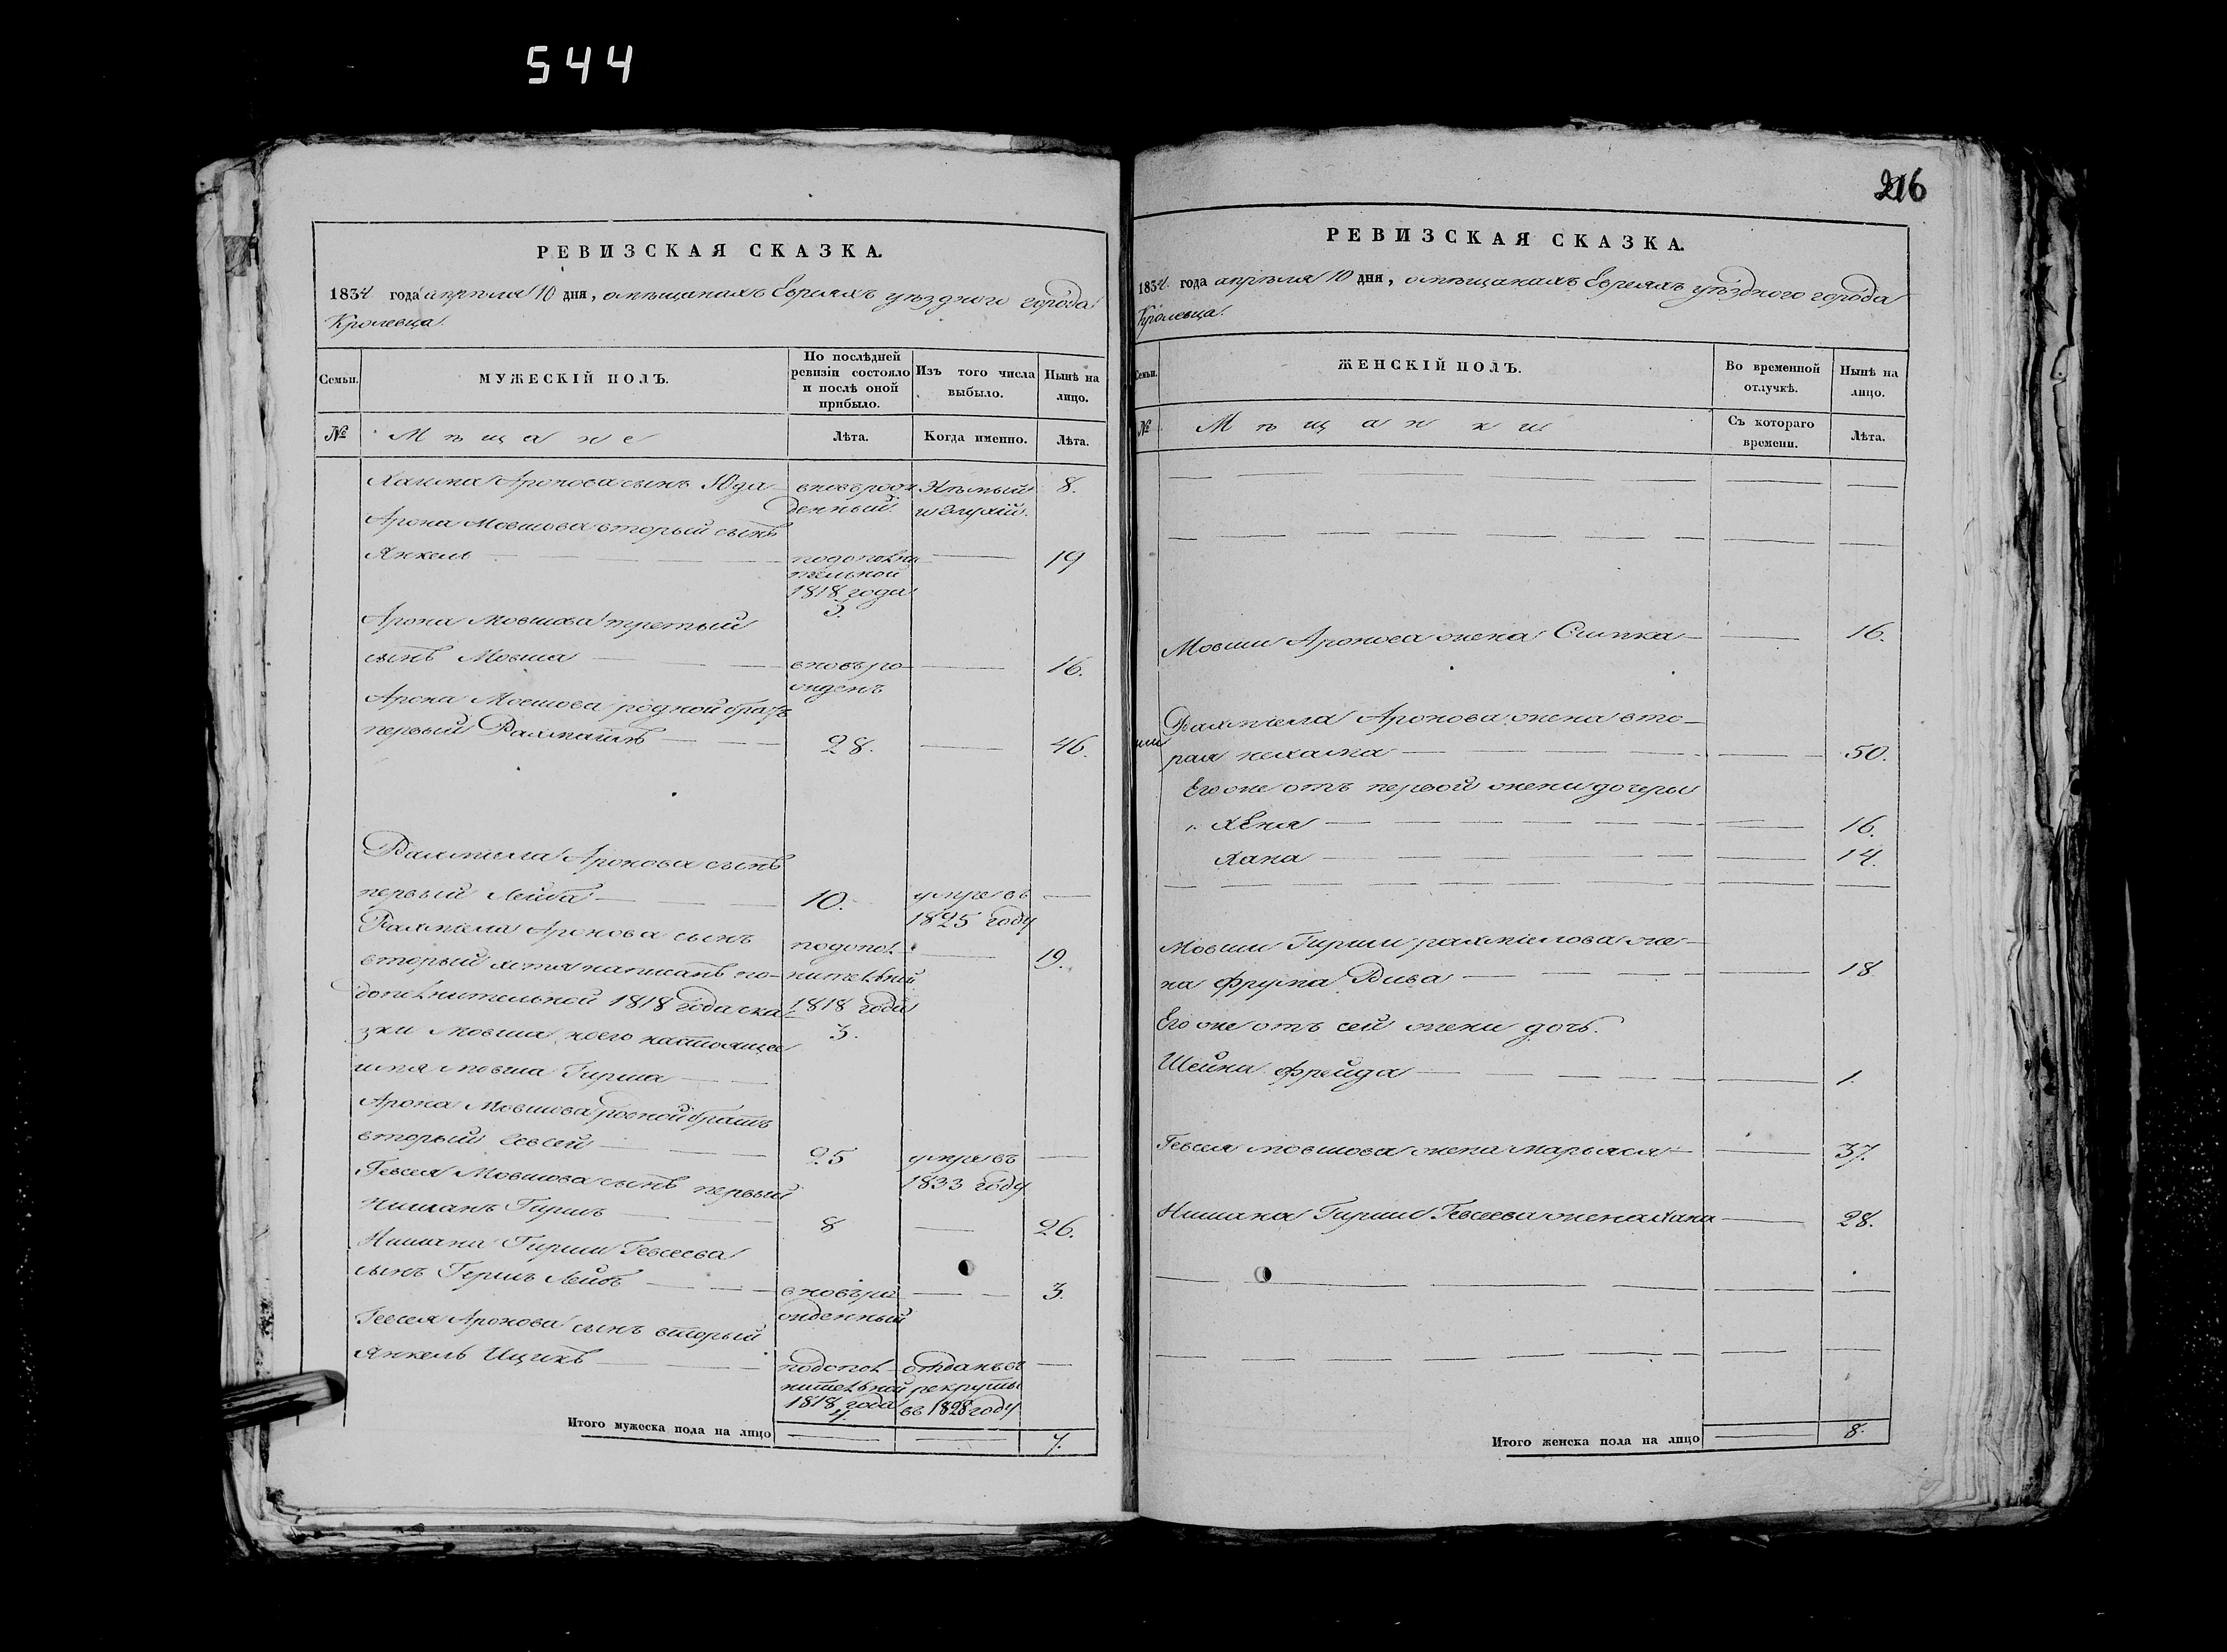 544
216
РЕВИЗСКАЯ СКАЗКА.
1834 года апреля 10 дня, о мѣщанахъ Евреяхъ уѣздного города
Кролевца.
Семьи.
МУЖЕСКІЙ ПОЛЪ.
По послѣдней
ревизіи состояло
и послѣ оной
прибыло.
Изъ того числа
выбыло.
Нынѣ на
лицо.
№
Мѣщане
Лѣта.
Когда именно.
Лѣта.
Хаима Аронова сынъ Юда — вновьрож Нѣмый 8.
денный и глухій.
Арона Мовшова вторый сынъ
Янкель — подополни — 19
тельной
1818 года
3.
Арона Мовшова третый
сынъ Мовша — вновьро — 16.
жденъ
Арона Мовшова родной братъ
первый Рахмаилъ — 28. — 46.
Рахмѣила Аронова сынъ
первый Лейба — 10. умре въ —
1825 году
Рахмѣила Аронова сынъ подопол — 19.
вторый хотя написанъ по- нительной
дополнительной 1818 года ска 1818 года
зки Мовша, коего настоящее 3.
имя Мовша Гирша —
Арона Мовшова родной братъ
вторый Евсей — 25 умре въ —
1833 году
Гевсея Мовшова сынъ первый
Нишанъ Гиршъ — 8 — 26.
Нишана Гирши Гевсеева
сынъ Гершъ Лейбъ — вновьро — 3.
жденный
Гевсея Аронова сынъ вторый
Янкель Ицикъ — подопол отданъ въ —
нительной рекруты
1818 года въ 1828 году
4.
Итого мужеска пола на лицо — — 7.
РЕВИЗСКАЯ СКАЗКА.
1834 года апрѣля 10 дня, о мѣщанахъ Евреяхъ уѣздного города
Кролевца.
Семьи.
ЖЕНСКІЙ ПОЛЪ.
Во временной
отлучкѣ.
Нынѣ на
лицо.
№
Мѣщанки
Съ котораго
времени.
Лѣта.
Мовши Аронова жена Симка — — 16.
Рахмѣела Аронова жена вто-
рая Нехама — — 50.
Его же отъ первой жены дочери
Хеня — — 16.
Хана — — 14.
Мовши Гирши Рахмѣлова же-
на Фрума Рива — — 18
Его же отъ сей жены дочь.
Шейна Фрейда — — 1.
Гевсея Мовшова жена Марьяся — — 37.
Нишана Гирши Гевсеева жена Хана — 28.
Итого женска пола на лицо — 8.